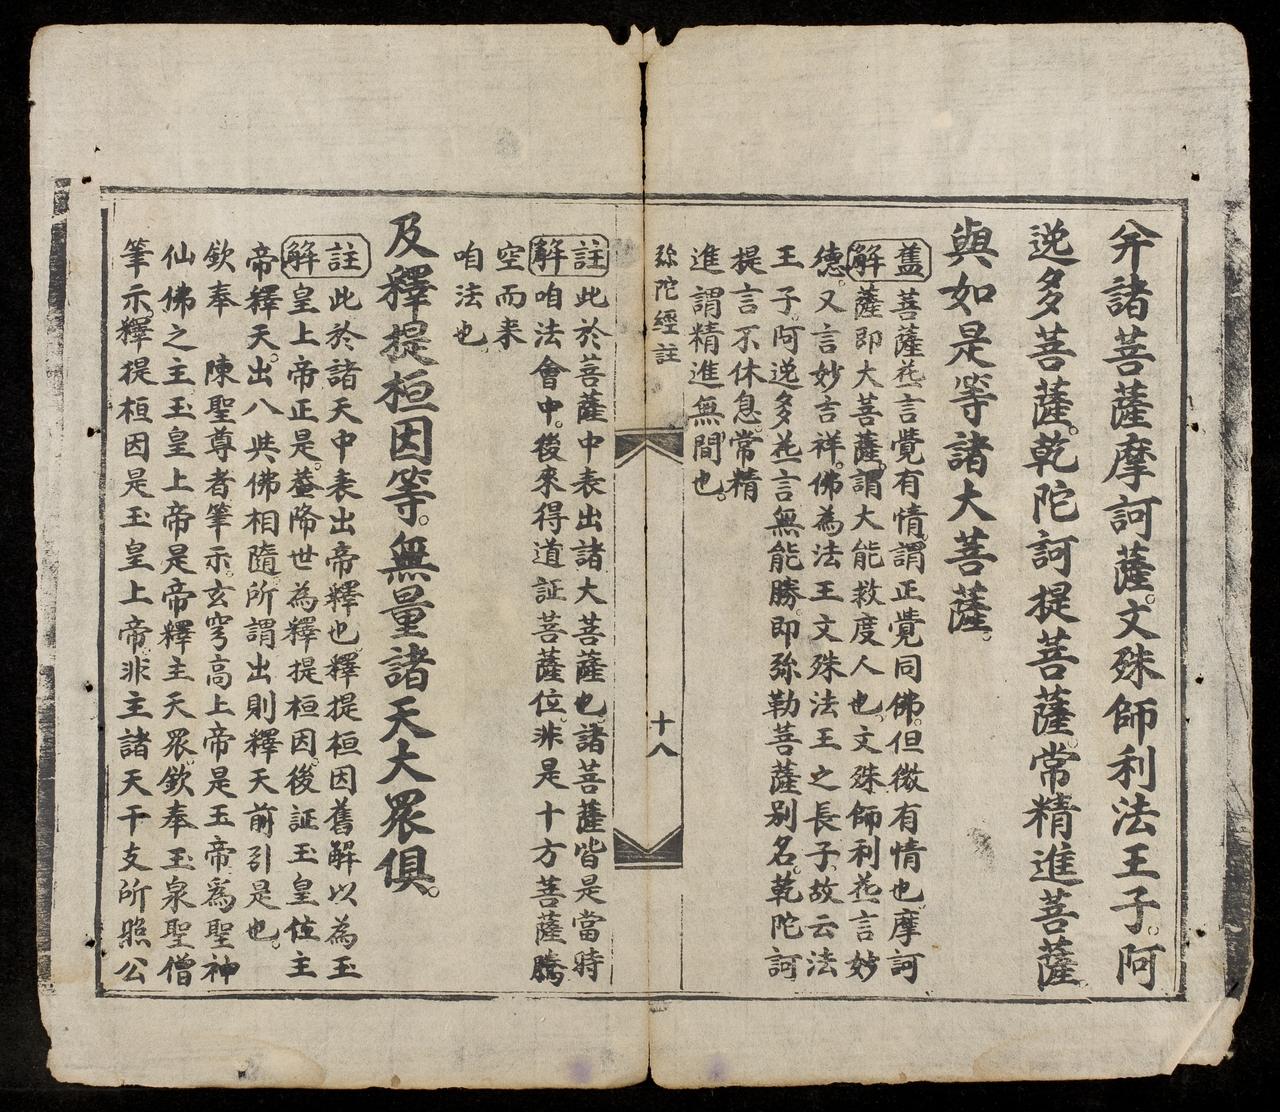 并諸菩薩摩訶薩。文殊師利法王子。阿
逸多菩薩。乾陀訶提菩薩。常精進菩薩。
與如是等諸大菩薩。
舊 菩薩花言覺有情。謂正覺同佛。但微有情也。摩訶
解 薩即大菩薩。謂大能救度人也。文殊師利花言妙
德。又言妙吉祥。佛為法王。文殊法王之長子。故云法
王子。阿逸多花言無能勝。即弥勒菩薩別名。乾陀訶
提言不休息。常精
進謂精進無間也。
弥陀經註
十八
註 此於菩薩中表出諸大菩薩也。諸菩薩皆是當時
解 咱法會中。後來得道証菩薩位。非是十方菩薩騰
空而来
咱法也。
及釋提桓因等。無量諸天大眾俱。
註 此於諸天中表出帝釋也。釋提桓因舊解以為玉
解 皇上帝正是。蓋降世為釋提桓因。後証玉皇位。主
帝釋天。出入與佛相隨。所謂出則釋天前引是也。
欽奉 陳聖尊者筆示。玄穹高上帝是玉帝。為聖神
仙佛之主。玉皇上帝是帝釋主天眾。欽奉玉泉聖僧
筆示。釋提桓因是玉皇上帝。非主諸天干支所照公